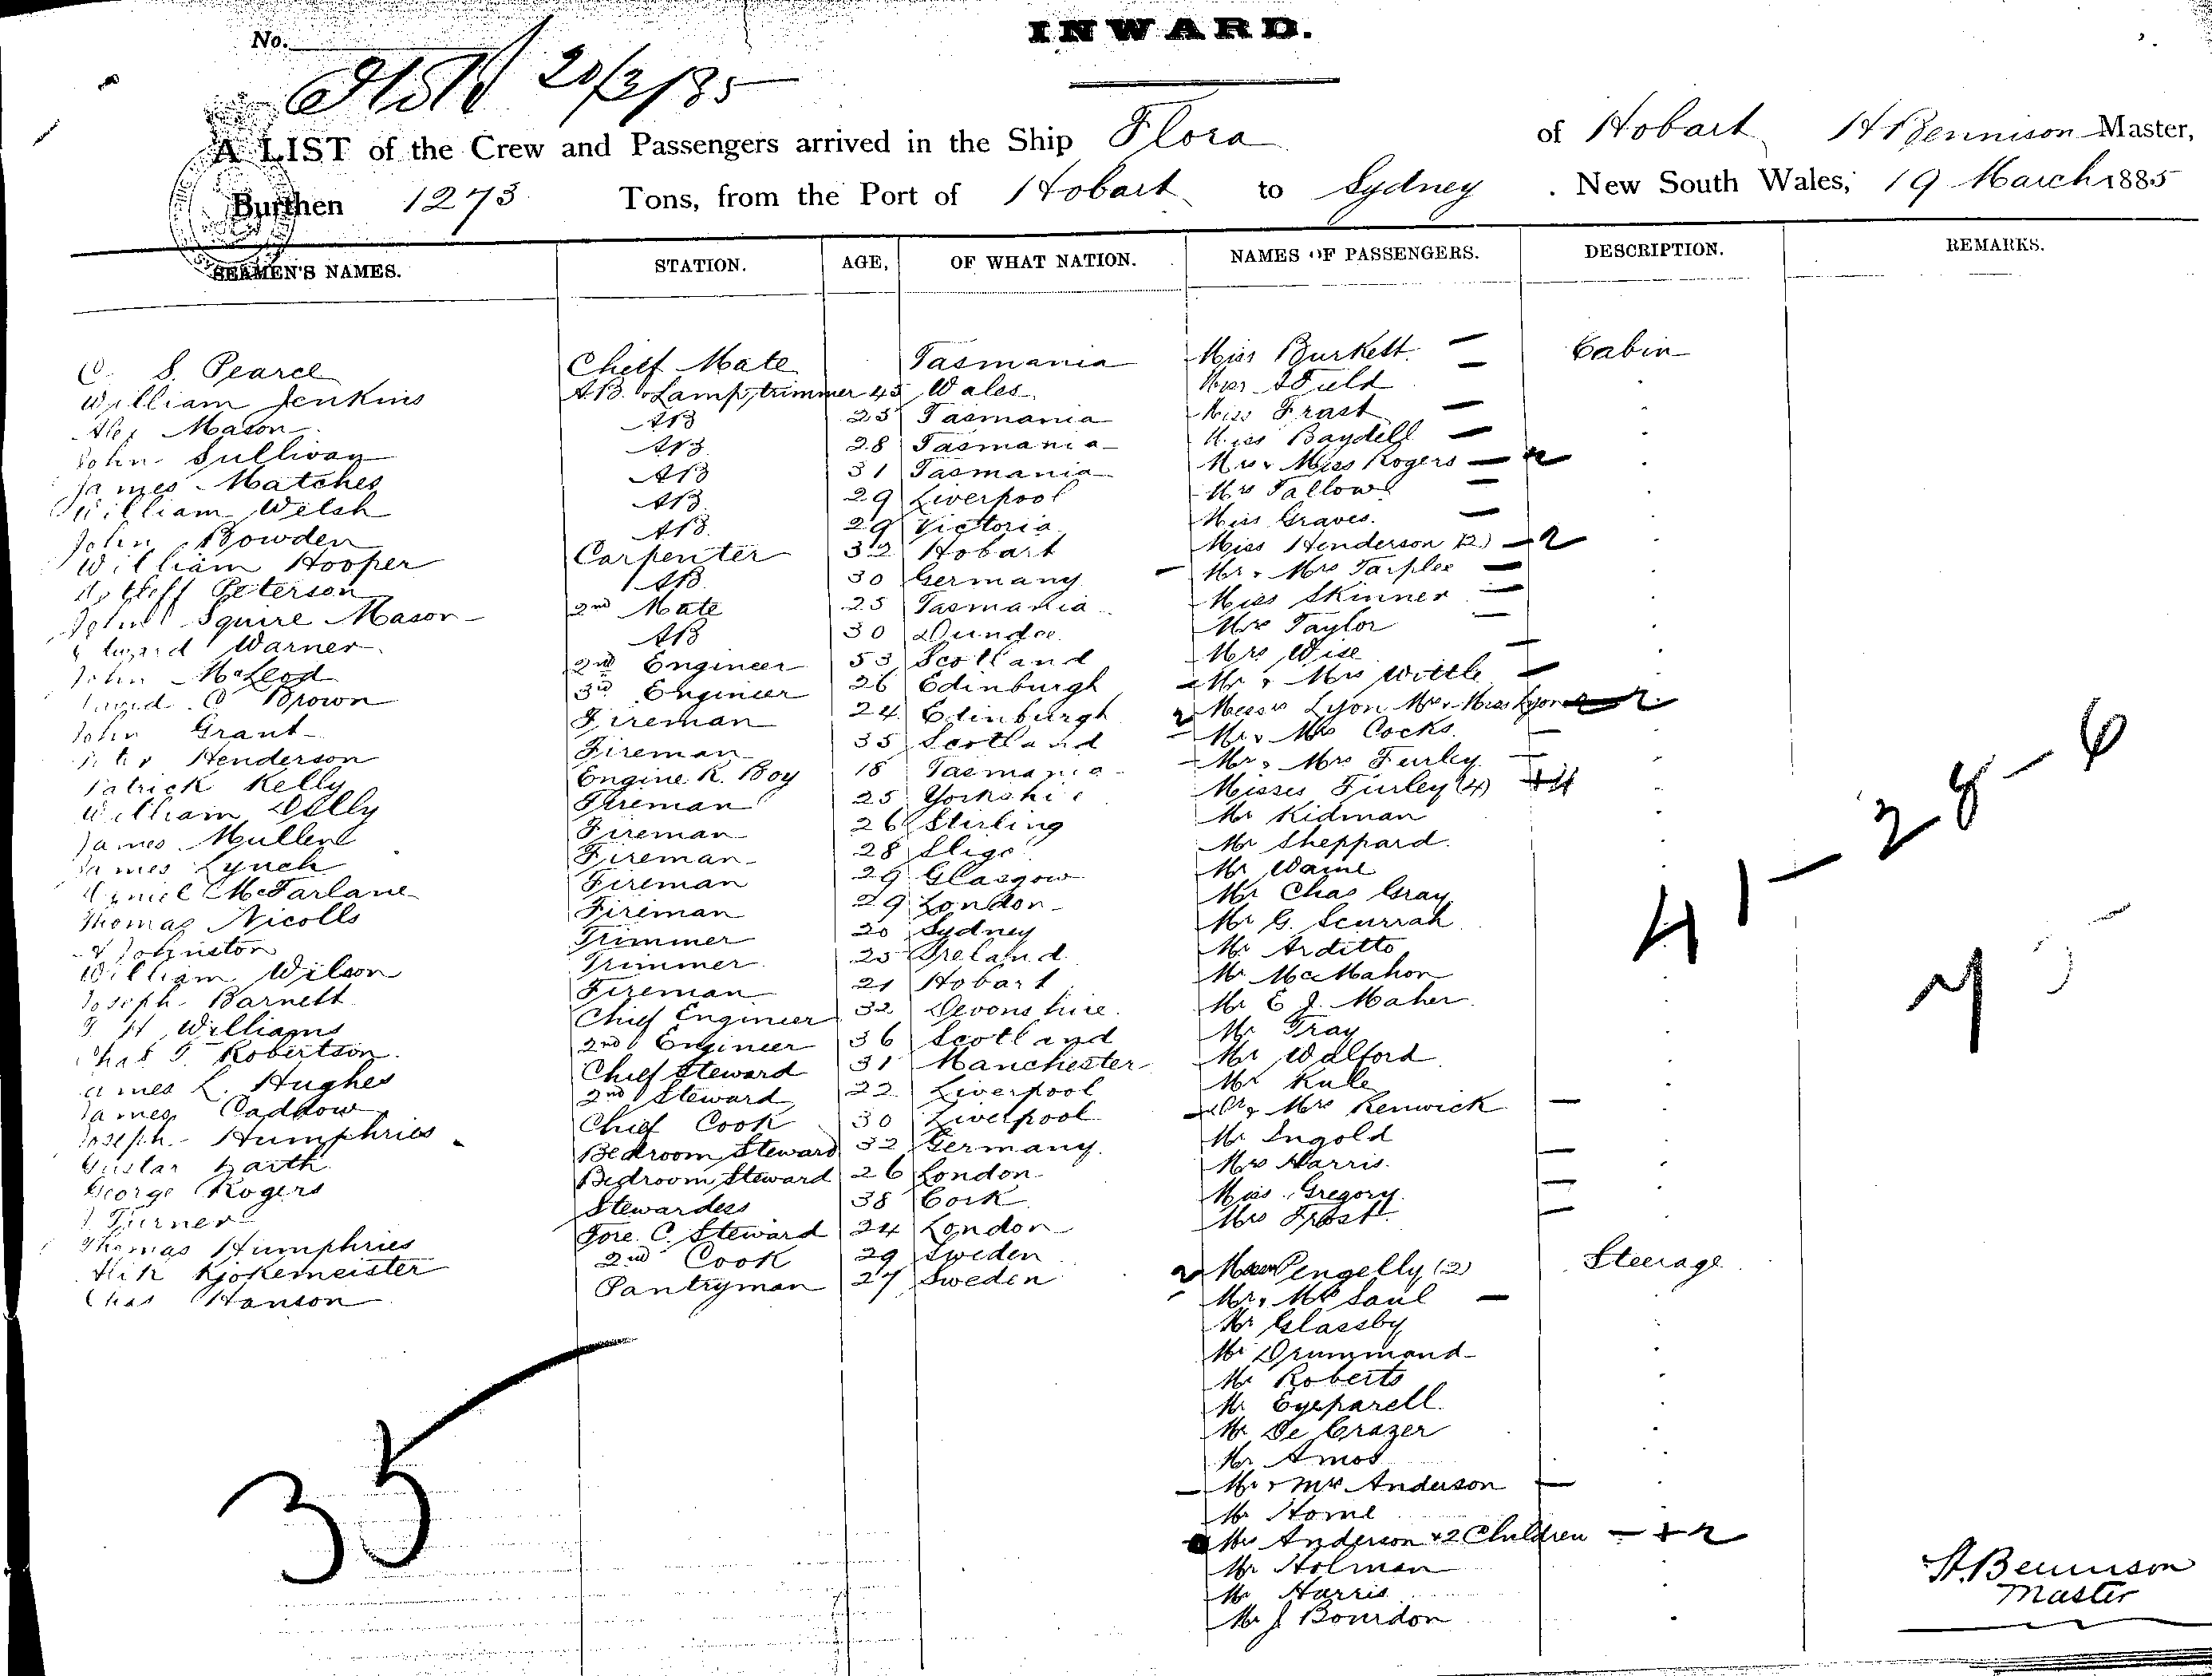 INWARD.
No.
20/3/85
A LIST of the Crew and Passengers arrived in the Ship Flora of Hobart H Bennison Master,
Burthen 1273 Tons, from the Port of Hobart to Sydney . New South Wales, 19 March 1885
SEAMEN'S NAMES. STATION. AGE, OF WHAT NATION. NAMES OF PASSENGERS. DESCRIPTION. REMARKS.
S. Pearce Chief Mate Tasmania Miss Burkett. — Cabin
William Jenkins AB. & Lamp trimmer 45 Wales —
Alex Mason AB 25 Tasmania Miss Frast —
John Sullivan AB 28 Tasmania Miss Baydell —
James Matches AB 31 Tasmania Mrs & Miss Rogers — 2
William Welsh AB 29 Liverpool Mrs Fallow —
John Bowden AB 29 Victoria Miss Graves. —
William Hooper Carpenter 32 Hobart Miss Henderson (2) — 2
Peterson AB 30 Germany — Mr & Mrs Tarplee —
John Squire Mason 2nd Mate 25 Tasmania Miss Skinner —
Warner AB 30 Dundee Mrs Taylor —
John McLeod 2nd Engineer 53 Scotland Mrs Wise —
David C Brown 3rd Engineer 26 Edinburgh — Mr & Mrs Wittle —
John Grant Fireman 24 Edinburgh 2 Messrs Lyon Mrs & Miss Lyon 2
Peter Henderson Fireman 35 Scotland — Mr & Mrs Cocks —
Patrick Kelly Engine R. Boy 18 Tasmania — Mr & Mrs Furley —
William Dilly Fireman 25 Yorkshire Misses Furley (4) +4
James Mullen Fireman 26 Stirling Mr Kidman
James Lynch Fireman 28 Sligo Mr Sheppard.
Daniel McFarlane Fireman 29 Glasgow Mr Waine
Thomas Nicolls Fireman 29 London Mr Chas Gray
Johnston Trimmer 20 Sydney Mr G. Scurrah
William Wilson Trimmer 25 Ireland Mr Arditto
Joseph Barnett Fireman 21 Hobart Mr McMahon
H Williams Chief Engineer 32 Devonshire. Mr E J. Maher.
Chas T. Robertson. 2nd Engineer 36 Scotland Mr Tray
James L. Hughes Chief Steward 31 Manchester Mr Walford
James Caddow 2nd Steward 22 Liverpool Mr Kule
Joseph Humphries Chief Cook 30 Liverpool & Mrs Renwick —
Gustav Barth Bedroom Steward 32 Germany. Mr Ingold
George Rogers Bedroom Steward 26 London Mrs Harris. —
Turner Stewardess 38 Cork Miss Gregory. —
Thomas Humphries Fore. C. Steward 24 London Mrs Frost. —
Kjokemeister 2nd Cook 29 Sweden 2 Pengelly (2) Steerage
Chas Hanson Pantryman 27 Sweden — Mr & Mrs Saul —
Mr Glassby
Mr Drummond
Mr Roberts
Mr Eyeparell
Mr De Crazer
Mr Amos
— Mr & Mrs Anderson —
Mr Horne
Mrs Anderson & 2 Children — +2
Mr Holman
Mr Harris
Mr J Bourdon
35
41 — 28 — 6
H. Bennison
Master